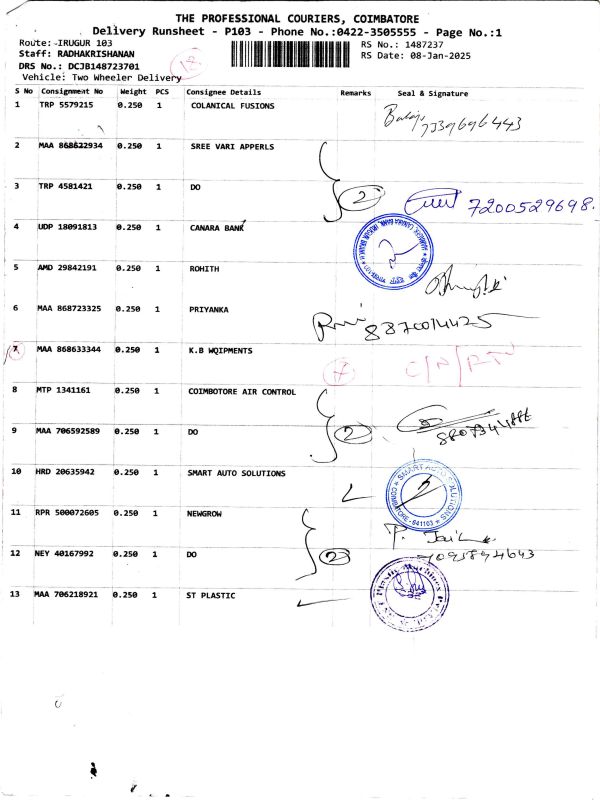 THE PROFESSIONAL COURIERS, COIMBATORE
Delivery Runsheet - P103 - Phone No.:0422-3505555 - Page No.:1
Route: IRUGUR 103
RS No.: 1487237
Staff: RADHAKRISHANAN
RS Date: 08-Jan-2025
DRS No.: DCJB148723701
12
Vehicle: Two Wheeler Delivery
S No Consignment No Weight PCS Consignee Details Remarks Seal & Signature
1 TRP 5579215 0.250 1 COLANICAL FUSIONS
7339696443
2 MAA 868622934 0.250 1 SREE VARI APPERLS
3 TRP 4581421 0.250 1 DO 2 7200529698.
4 UDP 18091813 0.250 1 CANARA BANK
5 AMD 29842191 0.250 1 ROHITH
6 MAA 868723325 0.250 1 PRIYANKA
8870014425
7 MAA 868633344 0.250 1 K.B WQIPMENTS
8 MTP 1341161 0.250 1 COIMBOTORE AIR CONTROL
9 MAA 706592589 0.250 1 DO 2
10 HRD 20635942 0.250 1 SMART AUTO SOLUTIONS
SMART AUTO SOLUTIONS
COIMBATORE - 641103
11 RPR 500072605 0.250 1 NEWGROW
12 NEY 40167992 0.250 1 DO 2
13 MAA 706218921 0.250 1 ST PLASTIC